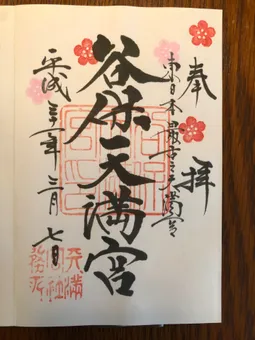 奉拝
東日本最古之天満宮
谷保天満宮
平成三十年三月七日
天満
宮社
務所